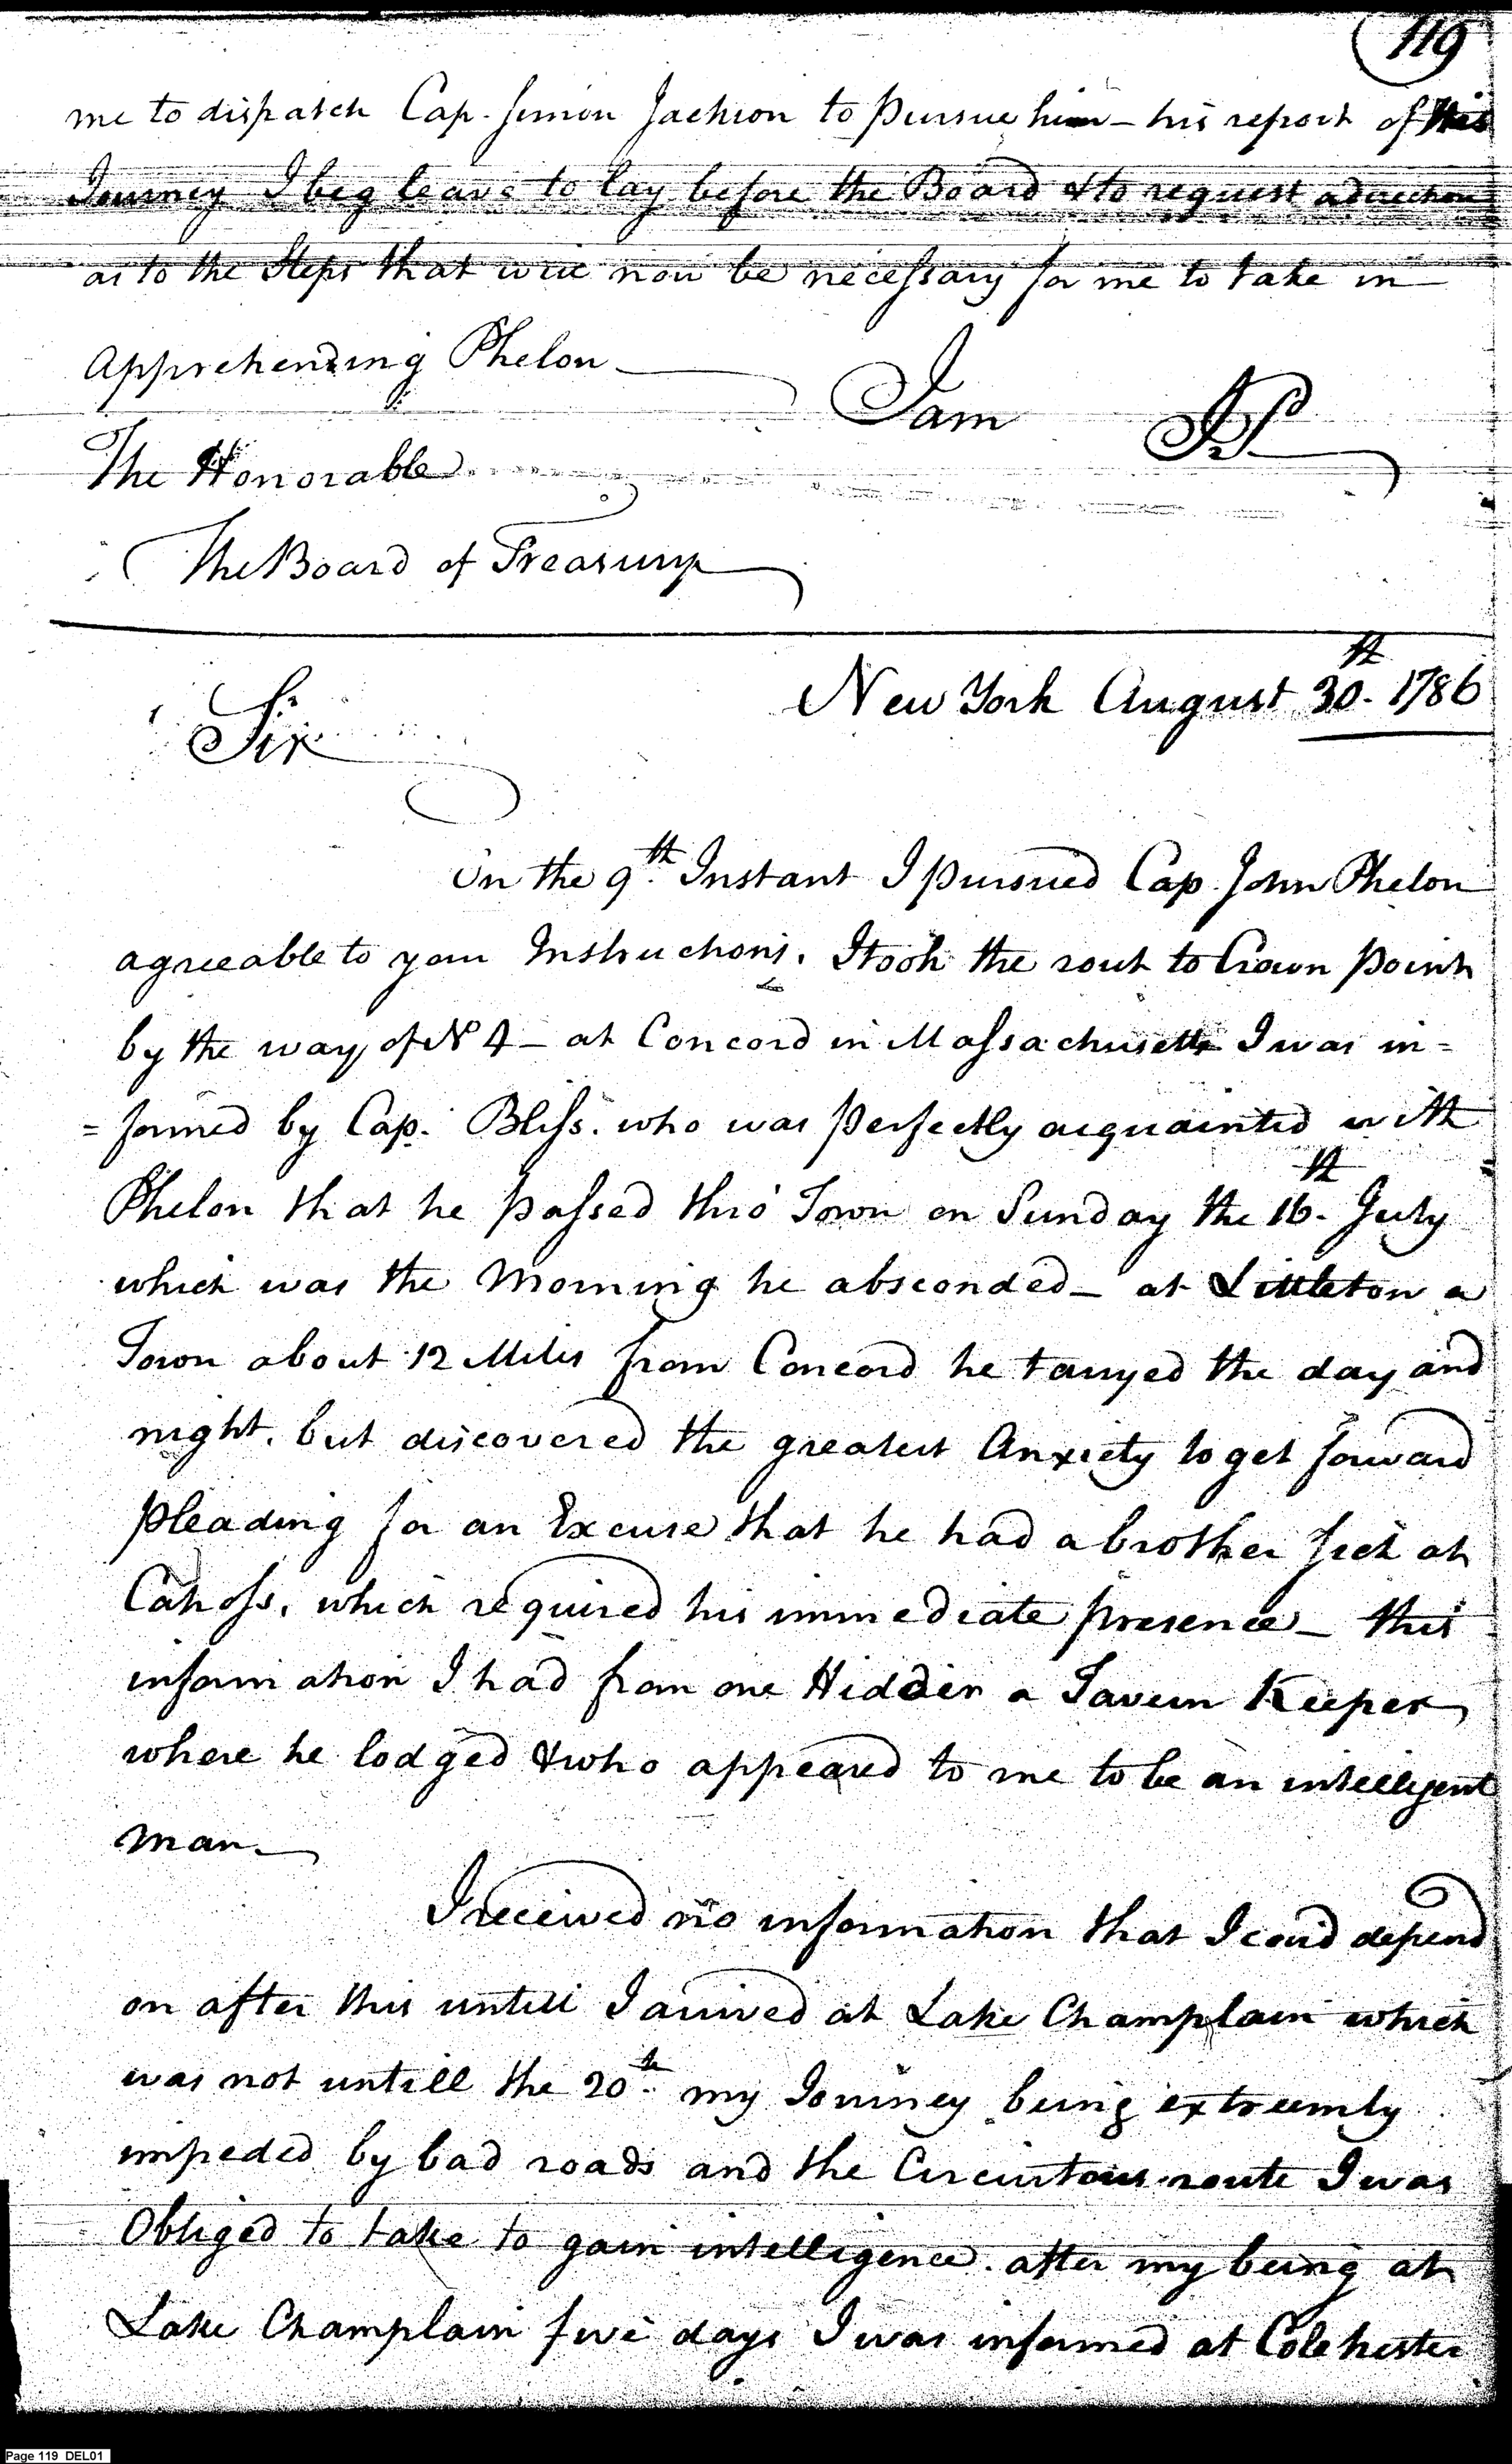 119
me to dispatch Cap. Simon Jackson to pursue him – his report of this
Journey I beg leave to lay before the Board & to request a direction
as to the Steps that will now be necessary for me to take in
Apprehending Phelon
I am
The Honorable
The Board of Treasury
New York August 30th. 1786
Sir
On the 9th. Instant I pursued Cap. John Phelon
agreeable to your Instructions. I took the rout to Crown Point
by the way of No 4 – at Concord in Massachusetts I was in=
=formed by Cap. Bliss. who was perfectly acquainted with
Phelon that he passed this Town on Sunday the 16th. July
which was the Morning he absconded – at Littleton a
Town about 12 Miles from Concord he tarryed the day and
night. but discovered the greatest Anxiety to get forward
pleading for an Excuse that he had a brother sick at
Cahoss. which required his immediate presence – this
information I had from one Hidder a Tavern Keeper
where he lodged & who appeared to me to be an intelligent
man.
I received no information that I coud depend
on after this untill I arrived at Lake Champlain which
was not untill the 20th. my Journey being extreemly
impeded by bad roads and the Circuitous route I was
Obliged to take to gain intelligence. after my being at
Lake Champlain five days I was informed at Colchester
Page 119 DEL01